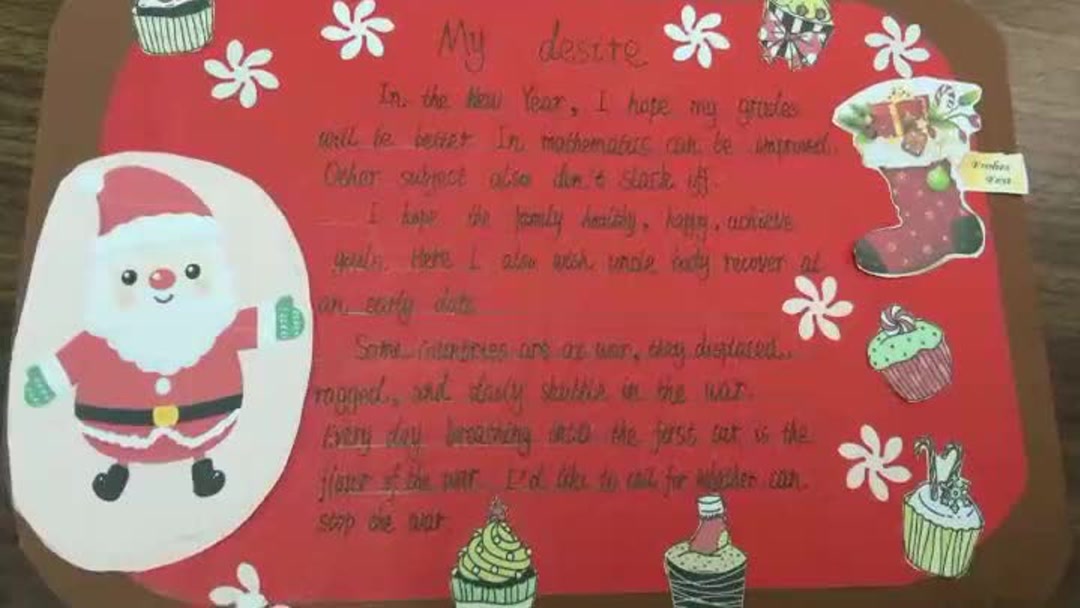 My desire
In the New Year, I hope my grades
will be better. In mathematics can be improved.
Other subject also don't slack off.
I hope the family healthy, happy, achieve
Here I also wish uncle body recover at
an early date
Some countries are at war, they displaced,
ragged, and shuttle in the war.
Every day breathing into the first is the
of the war. I'd like to call for whether can
stop the war
Frohes
Fest